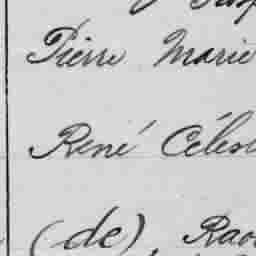 Pierre Marie
René Célest
(de), Raou